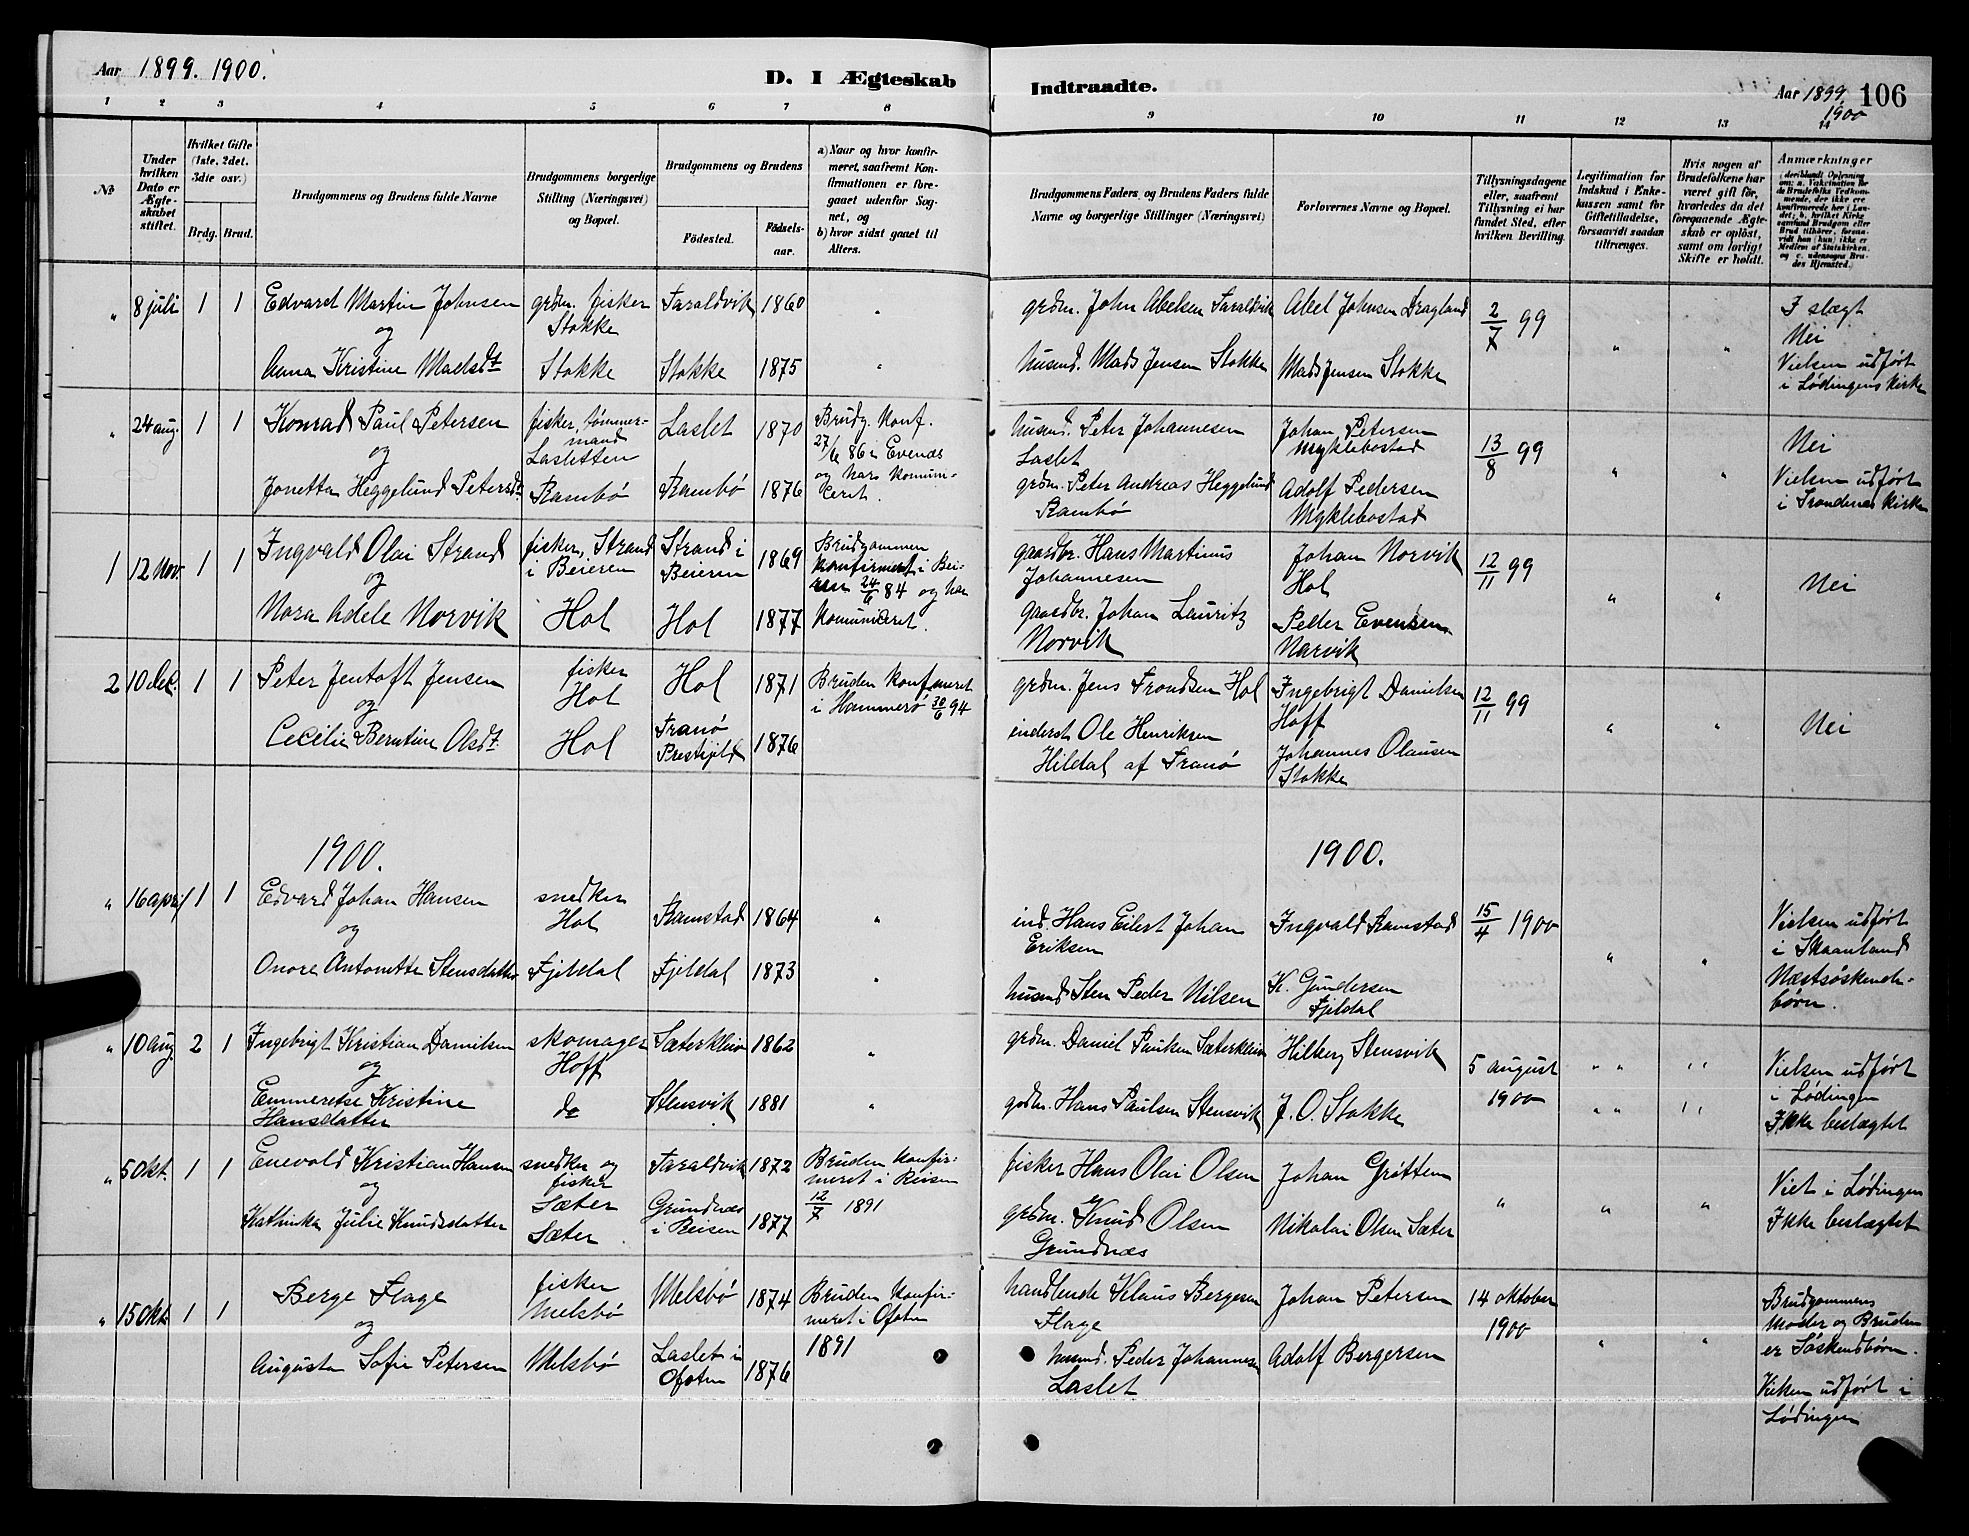 Aar 1899. 1900.
D. I Ægteskab
Indtraadte.
Aar 1899 106
1900
1 2 3 4 5 6 7 8 9 10 11 12 13 14
№
Under hvilken Dato er Ægteskabet stiftet.
Hvilket Gifte (1ste, 2det, 3die osv.)
Brdg. Brud.
Brudgommens og Brudens fulde Navne
Brudgommens borgerlige Stilling (Næringsvei) og Bopæl.
Brudgommens og Brudens
Fødested.
Fødselsaar.
a) Naar og hvor konfirmeret, saafremt Konfirmationen er foregaaet udenfor Sognet, og
b) hvor sidst gaaet til Alters.
Brudgommens Faders og Brudens Faders fulde Navne og borgerlige Stillinger (Næringsvei)
Forlovernes Navne og Bopæl.
Tillysningsdagene eller, saafremt Tillysning ei har fundet Sted, efter hvilken Bevilling.
Legitimation for Indskud i Enkekassen samt for Giftetilladelse, forsaavidt saadan tiltrænges.
Hvis nogen af Brudefolkene har været gift før, hvorledes da det foregaaende Ægteskab er opløst, samt om lovligt Skifte er holdt.
Anmærkninger
" 8 juli 1 1 Edvard Martin Johnsen
og
Anna Kristine Madsdt
grdm. fisker
Stokke
Stokke
Taraldvik 1860 "
Stokke 1875 "
grdm. John Abelsen Taraldvik
husmd. Mads Jensen Stokke
Abel Johnsen Dragland
Mads Jensen Stokke
2/7 99
" "
I slægt
Nei
Vielsen udført
i Lødingens kirke
" 24 aug. 1 1 Konrad Paul Petersen
og
Jonetta Heggelund Petersdt
fisker, tømmermand
Lasletten
Rambø
Laslet 1870
Rambø 1876
Brudg. Konf.
27/6 86 i Evenæs
og har komuniceret.
husmd. Peter Johannesen
Laslet
grdm. Peter Andreas Heggelund
Rambø
Johan Petersen
Myklebostad
Adolf Pedersen
Myklebostad
13/8 99
" "
Nei
Vielsen udført
i Trondenes kirke
1 12 Nov. 1 1 Ingvald Olai Strand
og
Nora Adele Norvik
fisker, Strand
i Beieren
Hol
Strand i
Beieren 1869
Hol 1877
Brudgommen
konfirmert i Beieren 24/6 84 og har
komuniceret.
gaardbr. Hans Martinus
Johannesen
gaardbr. Johan Lauritz
Norvik
Johan Norvik
Hol
Peder Evensen
Narvik
12/11 99
" "
Nei
2 10 dec. 1 1 Peter Jentoft Jensen
og
Cecelie Berntine Olsdt.
fisker
Hol
Hol
Hol 1871
Tranø
Prestgjeld 1876
Bruden Konfmeret
i Hammerø 30/6 94
grdm. Jens Trondsen Hol
inderst Ole Henriksen
Hildal af Tranø
Ingebrigt Danielsen
Hoff
Johannes Olausen
Stokke
12/11 99
" "
Nei
1900. 1900.
" 16 april 1 1 Edvard Johan Hansen
og
Onore Antonette Stensdatter
snedker
Hol
Fjeldal
Ramstad 1864 "
Fjeldal 1873 "
ind. Hans Eilert Johan
Eriksen
husmd Sten Peder Nilsen
Ingvald Ramstad
K. Gundersen
Fjeldal
15/4 1900
" "
Vielsen udført
i Skaanland
Næstsøskendebørn.
" 10 aug. 2 1 Ingebrigt Kristian Danielsen
og
Emmeretse Kristine
Hansdatter
skomager
Hoff
do
Sæterkleiv 1862 "
Stensvik 1881 "
grdm. Daniel Paulsen Sæterkleiv
grdm. Hans Paulsen Stensvik
Hilberg Stensvik
J. O. Stokke
5 august
1900
" " " "
" " " "
Vielsen udført
i Lødingen
Ikke beslægtet
" 5 Okt. 1 1 Enevold Kristian Hansen
og
Kathinka Julie Knudsdatter
snedker og
fisker
Sæter
Sæter
Taraldvik 1872
Grundnæs
i Reisen 1877
Bruden konfirmeret i Reisen
12/7 1891
fisker Hans Olai Olsen
grdm. Knud Olsen
Grundnæs
Johan Grøtten
Nikolai Olsen Sæter
" " "
Viet i Lødingen
Ikke beslægtet
" 15 Okt. 1 1 Berge Flage
og
Augusta Sofie Petersen
fisker
Melsbø
Melsbø
Melsbø 1874
Laslet i
Ofoten 1876
Bruden konfirmeret i Ofoten
1891
handlende Klaus Bergesen
Flage
husmd. Peder Johannesen
Laslet
Johan Petersen
Adolf Bergersen
14 oktober
1900
" "
Brudgommens
Moder og Bruden
er Søskendbørn.
Vielsen udført i
Lødingen